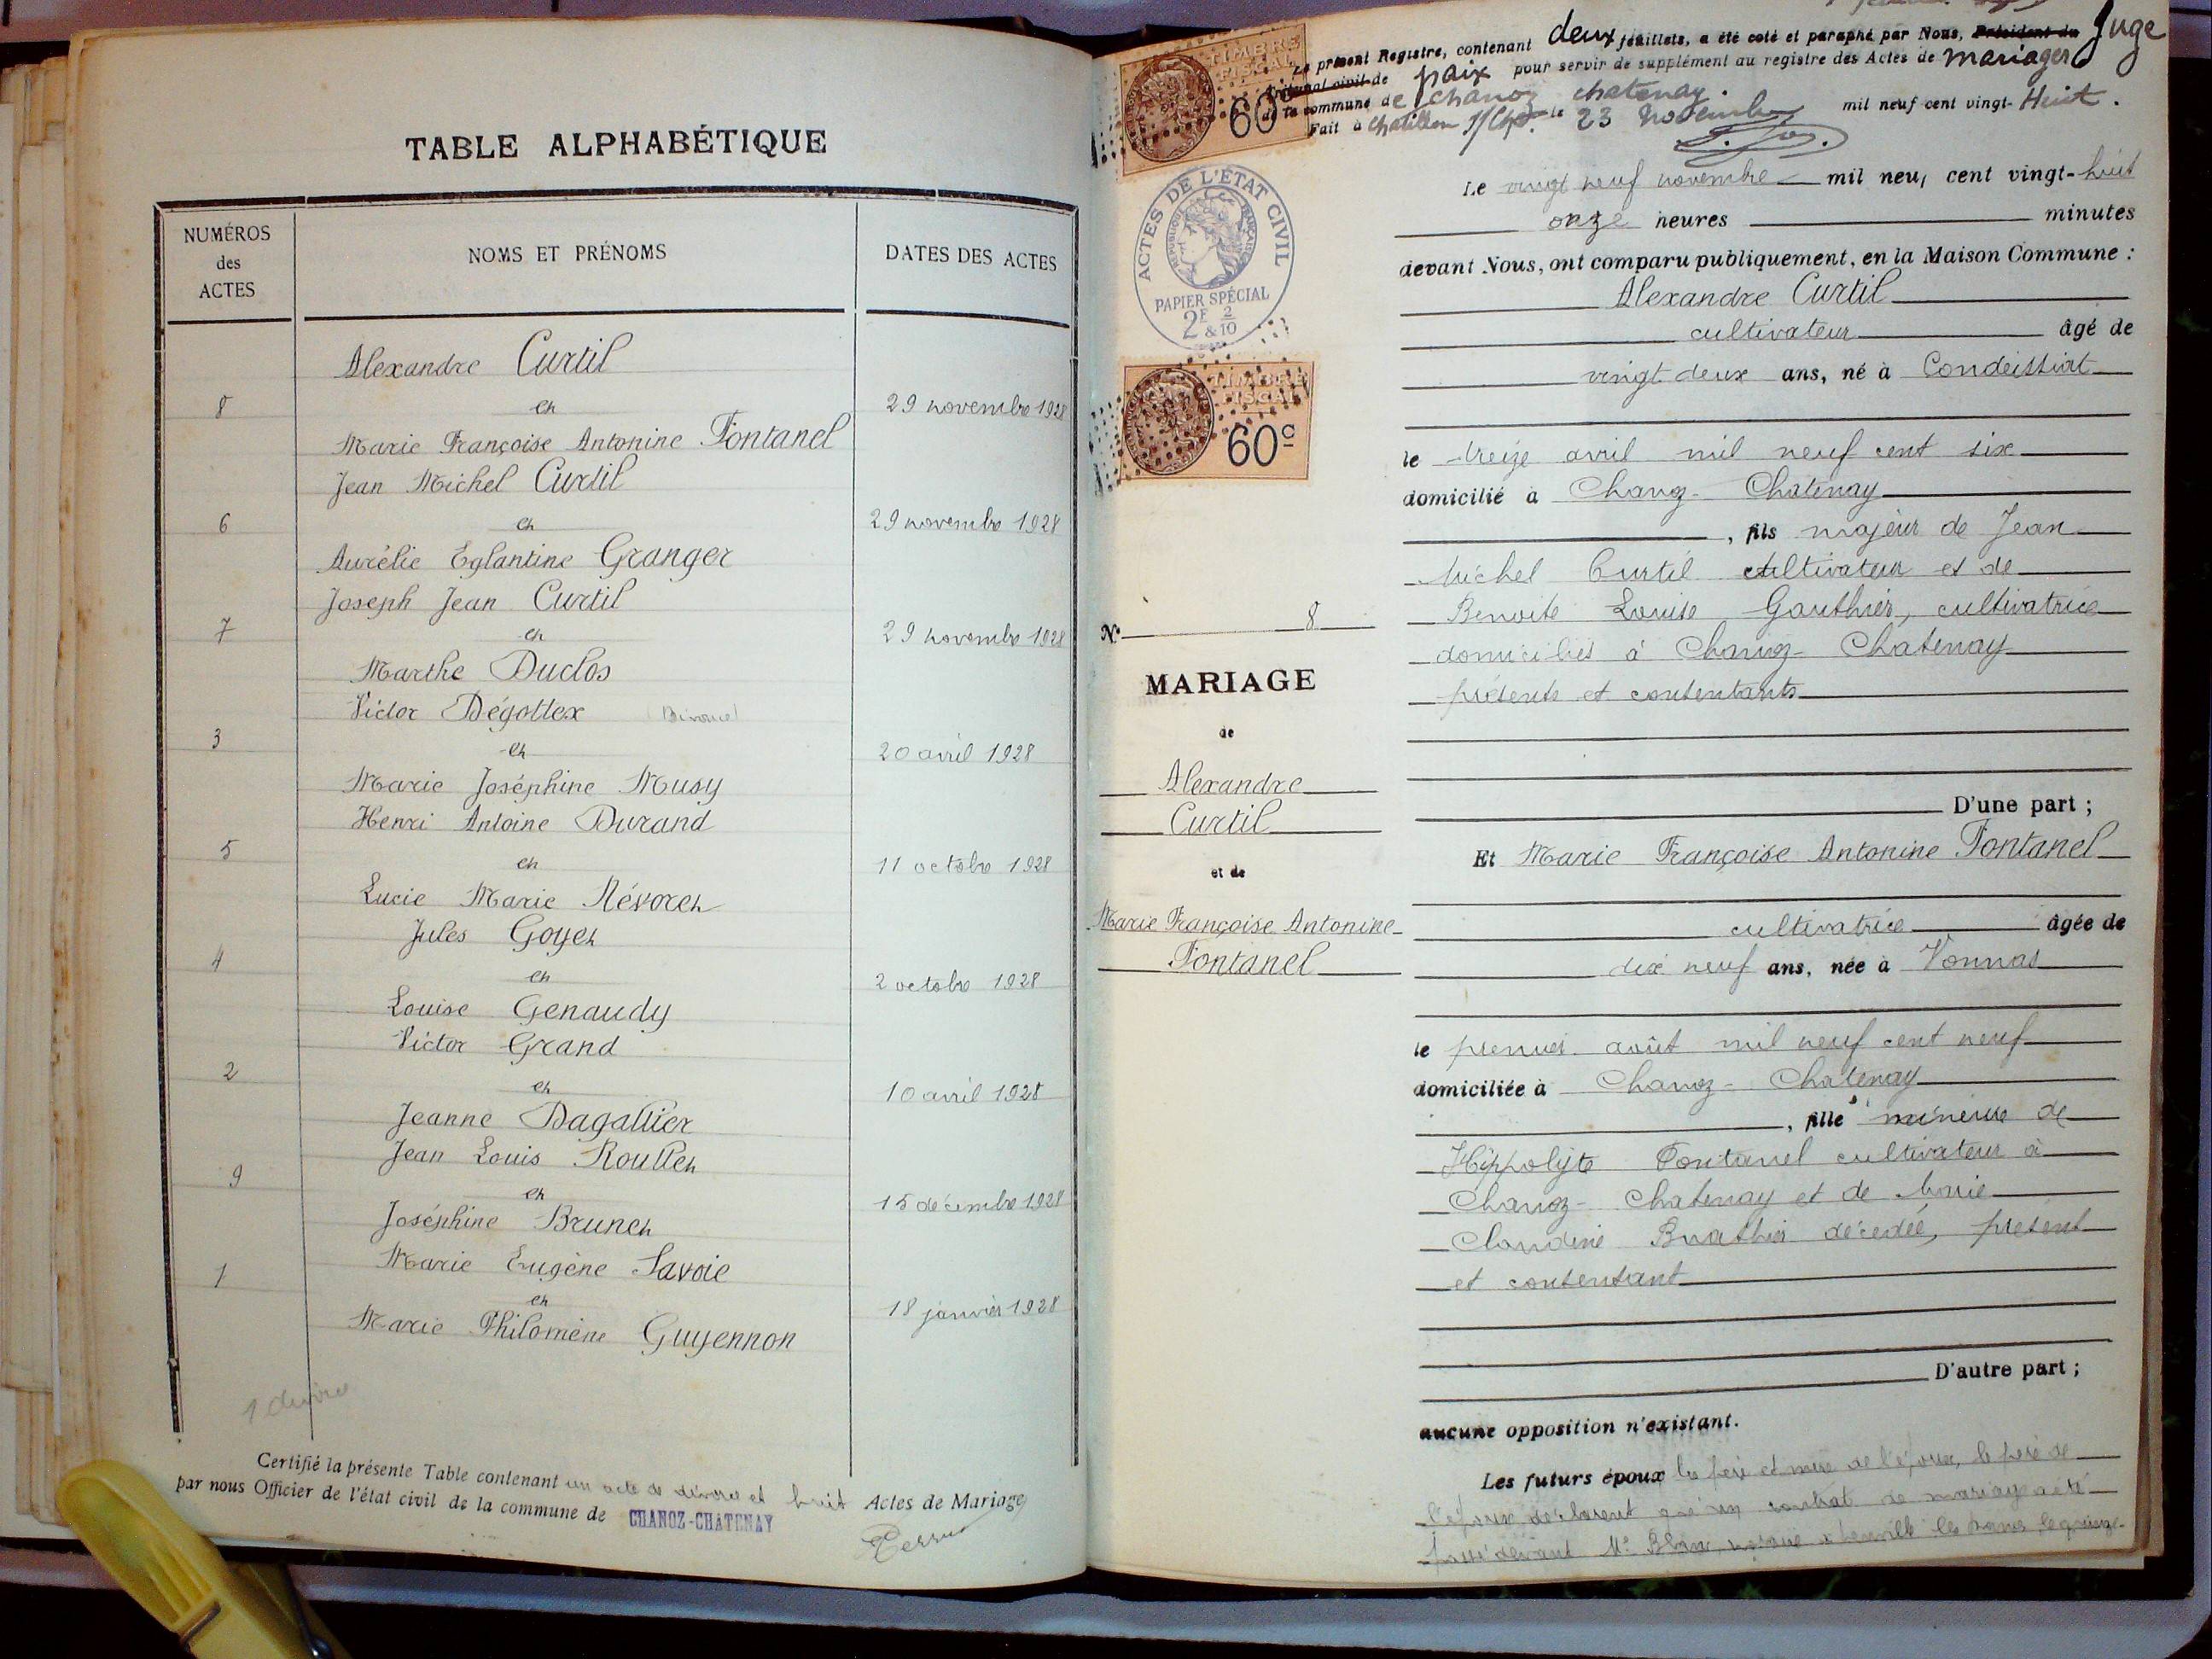 TABLE ALPHABÉTIQUE
NUMÉROS
des
ACTES
NOMS ET PRÉNOMS
DATES DES ACTES
Alexandre Curtil
8 et 29 novembre 1928
Marie Françoise Antonine Fontanel
Jean Michel Curtil
6 et 29 novembre 1928
Aurélie Eglantine Granger
Joseph Jean Curtil
7 et 29 novembre 1928
Marthe Duclos
Victor Dégottex (Divorce)
3 et 20 avril 1928
Marie Joséphine Musy
Henri Antoine Durand
5 et 11 octobre 1928
Lucie Marie Névoret
Jules Goyet
4 et 2 octobre 1928
Louise Genaudy
Victor Grand
2 et 10 avril 1928
Jeanne Dagallier
Jean Louis Roullet
9 et 15 décembre 1928
Joséphine Brunet
Marie Eugène Savoie
1 et 18 janvier 1928
Marie Philomène Guyennon
1 divorce
Certifié la présente Table contenant un acte de divorce et huit Actes de Mariage
par nous Officier de l'état civil de la commune de CHANOZ-CHATENAY
Le présent Registre, contenant deux feuillets, a été coté et paraphé par Nous, Président du Juge
Tribunal civil de paix pour servir de supplément au registre des Actes de mariages
de la commune de Chanoz Chatenay.
Fait à Chatillon s/Ch. le 23 novembre mil neuf cent vingt-Huit.
TIMBRE
FISCAL
60c
ACTES DE L'ÉTAT CIVIL
RÉPUBLIQUE FRANÇAISE
PAPIER SPÉCIAL
2F 2
& 10
TIMBRE
FISCAL
60c
No 8
MARIAGE
de
Alexandre
Curtil
et de
Marie Françoise Antonine
Fontanel
Le vingt neuf novembre mil neuf cent vingt-huit
onze heures minutes
devant Nous, ont comparu publiquement, en la Maison Commune :
Alexandre Curtil
cultivateur âgé de
vingt deux ans, né à Condeissiat
le treize avril mil neuf cent six
domicilié à Chanoz-Chatenay
, fils majeur de Jean
Michel Curtil cultivateur et de
Benoite Louise Gauthier, cultivatrice
domiciliés à Chanoz-Chatenay
présents et consentants
D'une part ;
Et Marie Françoise Antonine Fontanel
cultivatrice âgée de
dix neuf ans, née à Vonnas
le premier août mil neuf cent neuf
domiciliée à Chanoz-Chatenay
, fille mineure de
Hippolyte Fontanel cultivateur à
Chanoz-Chatenay et de Marie
Claudine Buathier décédée, présent
et consentant
D'autre part ;
aucune opposition n'existant.
Les futurs époux les père et mère de l'époux, le père de
l'épouse déclarent qu'un contrat de mariage a été
passé devant Me Blanc, notaire à les le quinze